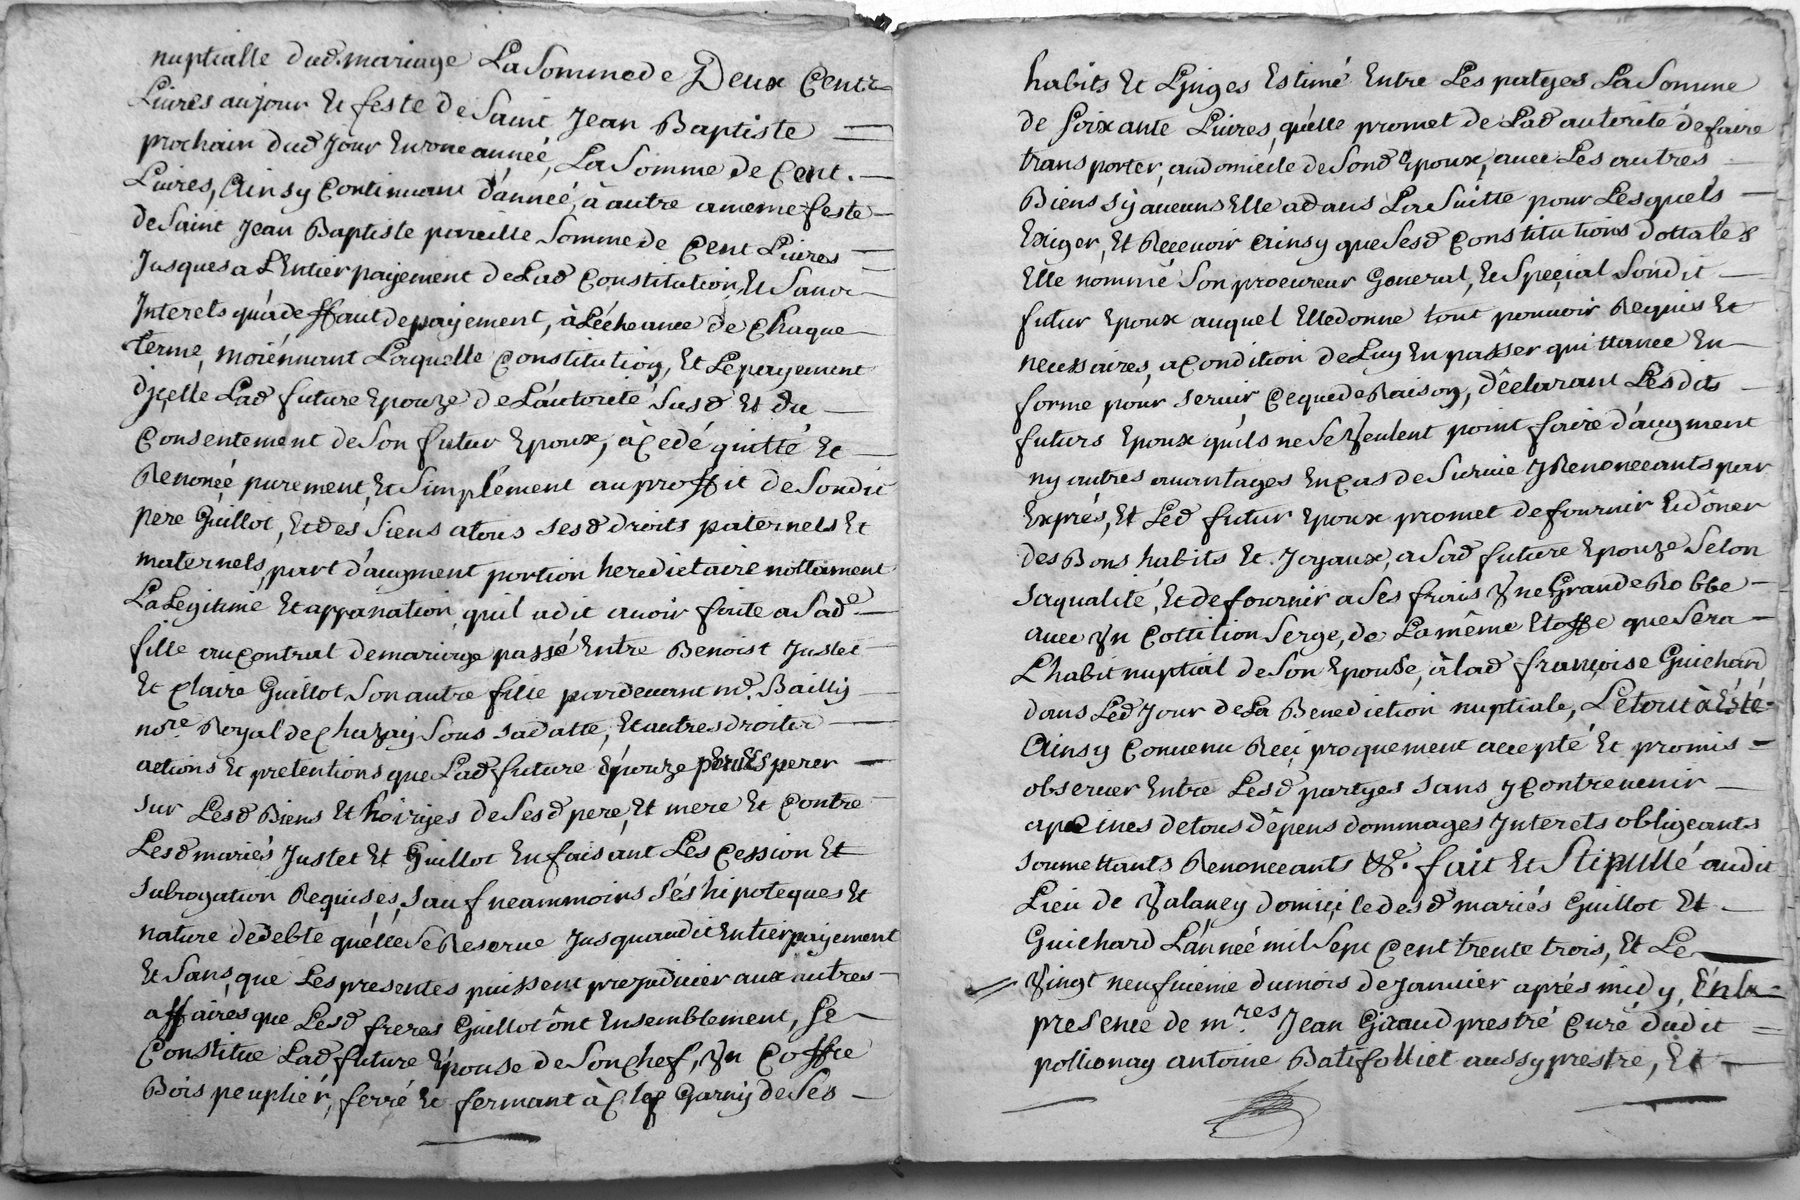 nuptialle dud. mariage La Somme de Deux Cents
Livres au jour Et feste de Saint Jean Baptiste
prochain dud Jour En une année, La Somme de Cent.
Livres, Ainsy Continuant d'année, à autre a meme feste
de Saint Jean Baptiste pareille Somme de Cent Livres
Jusques a L'Entier payement de Lad Constitution, Et Sans
Interets qu'a deffaut de payement, à L'écheance de Chaque
terme, moiénnant Laquelle Constitution, Et Le payement
d'jcelle Lad future Epouze de L'autorité Susd Et du
Consentement de Son futur Epoux, à Cedé quitté Et
Renoncé purement, Et Simplement au proffit de Sondit
pere Guillot, Et des Siens a tous sesd droits paternels Et
maternels, part d'augment portion hereditaire nottament
La Legitime Et appanation, qu'il a dit avoir faite a Sad
fille au Contrat de mariage passé Entre Benoist Justet
Et Claire Guillot Son autre fille pardevant me. Bailly
nore. Royal de Chazay Sous sa datte, Et autres droits
actions Et pretentions que Lad future épouze peut Esperer
sur Lesd Biens Et hoiries de Sesd pere, Et mere Et Contre
Lesd mariés Justet Et Guillot En faisant Les Cession Et
subrogation Requises, sauf neammoins Sés hipoteques Et
nature de debte qu'elle Se Reserve Jusqu'audit Entier payement
Et Sans, que Les presentes puissent prejudicier aux autres
affaires que Lesd freres Guillot ônt Ensemblement, Se
Constitue Lad future Epouse de Son Chef, Un Coffre
Bois peuplier, ferré Et fermant à Clef Garny de Ses
habits Et Linges Estimé Entre Les partyes La Somme
de Soixante Livres, qu'elle promet de Lad autorité de faire
transporter, au domicile de Sond Epoux, avec Les autres
Biens s'y aucuns Elle a dans La Suitte pour Lesquels
Exiger, Et Recevoir Ainsy que Sesd Constitutions dottales
Elle nomme Son procureur General, Et Special Sondit
futur Epoux auquel Elle donne tout pouvoir Requis Et
necessaires, a Condition de Luy En passer quittance En
forme pour servir Ce que de Raison, déclarant Lesdits
futurs Epoux qu'ils ne Se Veulent point faire d'augment
ny autres avantages En Cas de Survie y Renonceants par
Exprés, Et Led futur Epoux promet de fournir Et dôner
des Bons habits Et Joyaux, a Sad future Epouze Selon
Sa qualité, Et de fournir a Ses frais Une Grande Robbe
avec Un Cottition Serge, de La même Etoffe que Sera
L'habit nuptial de Son Epouse, à lad françoise Guichard
dans Led Jour de La Benediction nuptiale, Le tout à Esté
Ainsy Convenu Reciproquement accepté Et promis
observer Entre Lesd partyes sans y Contrevenir
a peines de tous dêpens dommages Interets obligeants
soumettants Renonceants &c. fait Et Stipullé audit
Lieu de Valancy domicile desd mariés Guillot Et
Guichard L'année mil Sept Cent trente trois, Et Le
Vingt neufvieme du mois de Janvier aprés midy, En la
presence de mres Jean Giraud prestre Curé dudit
pollionay antoine Batifolliet aussy prestre, Et